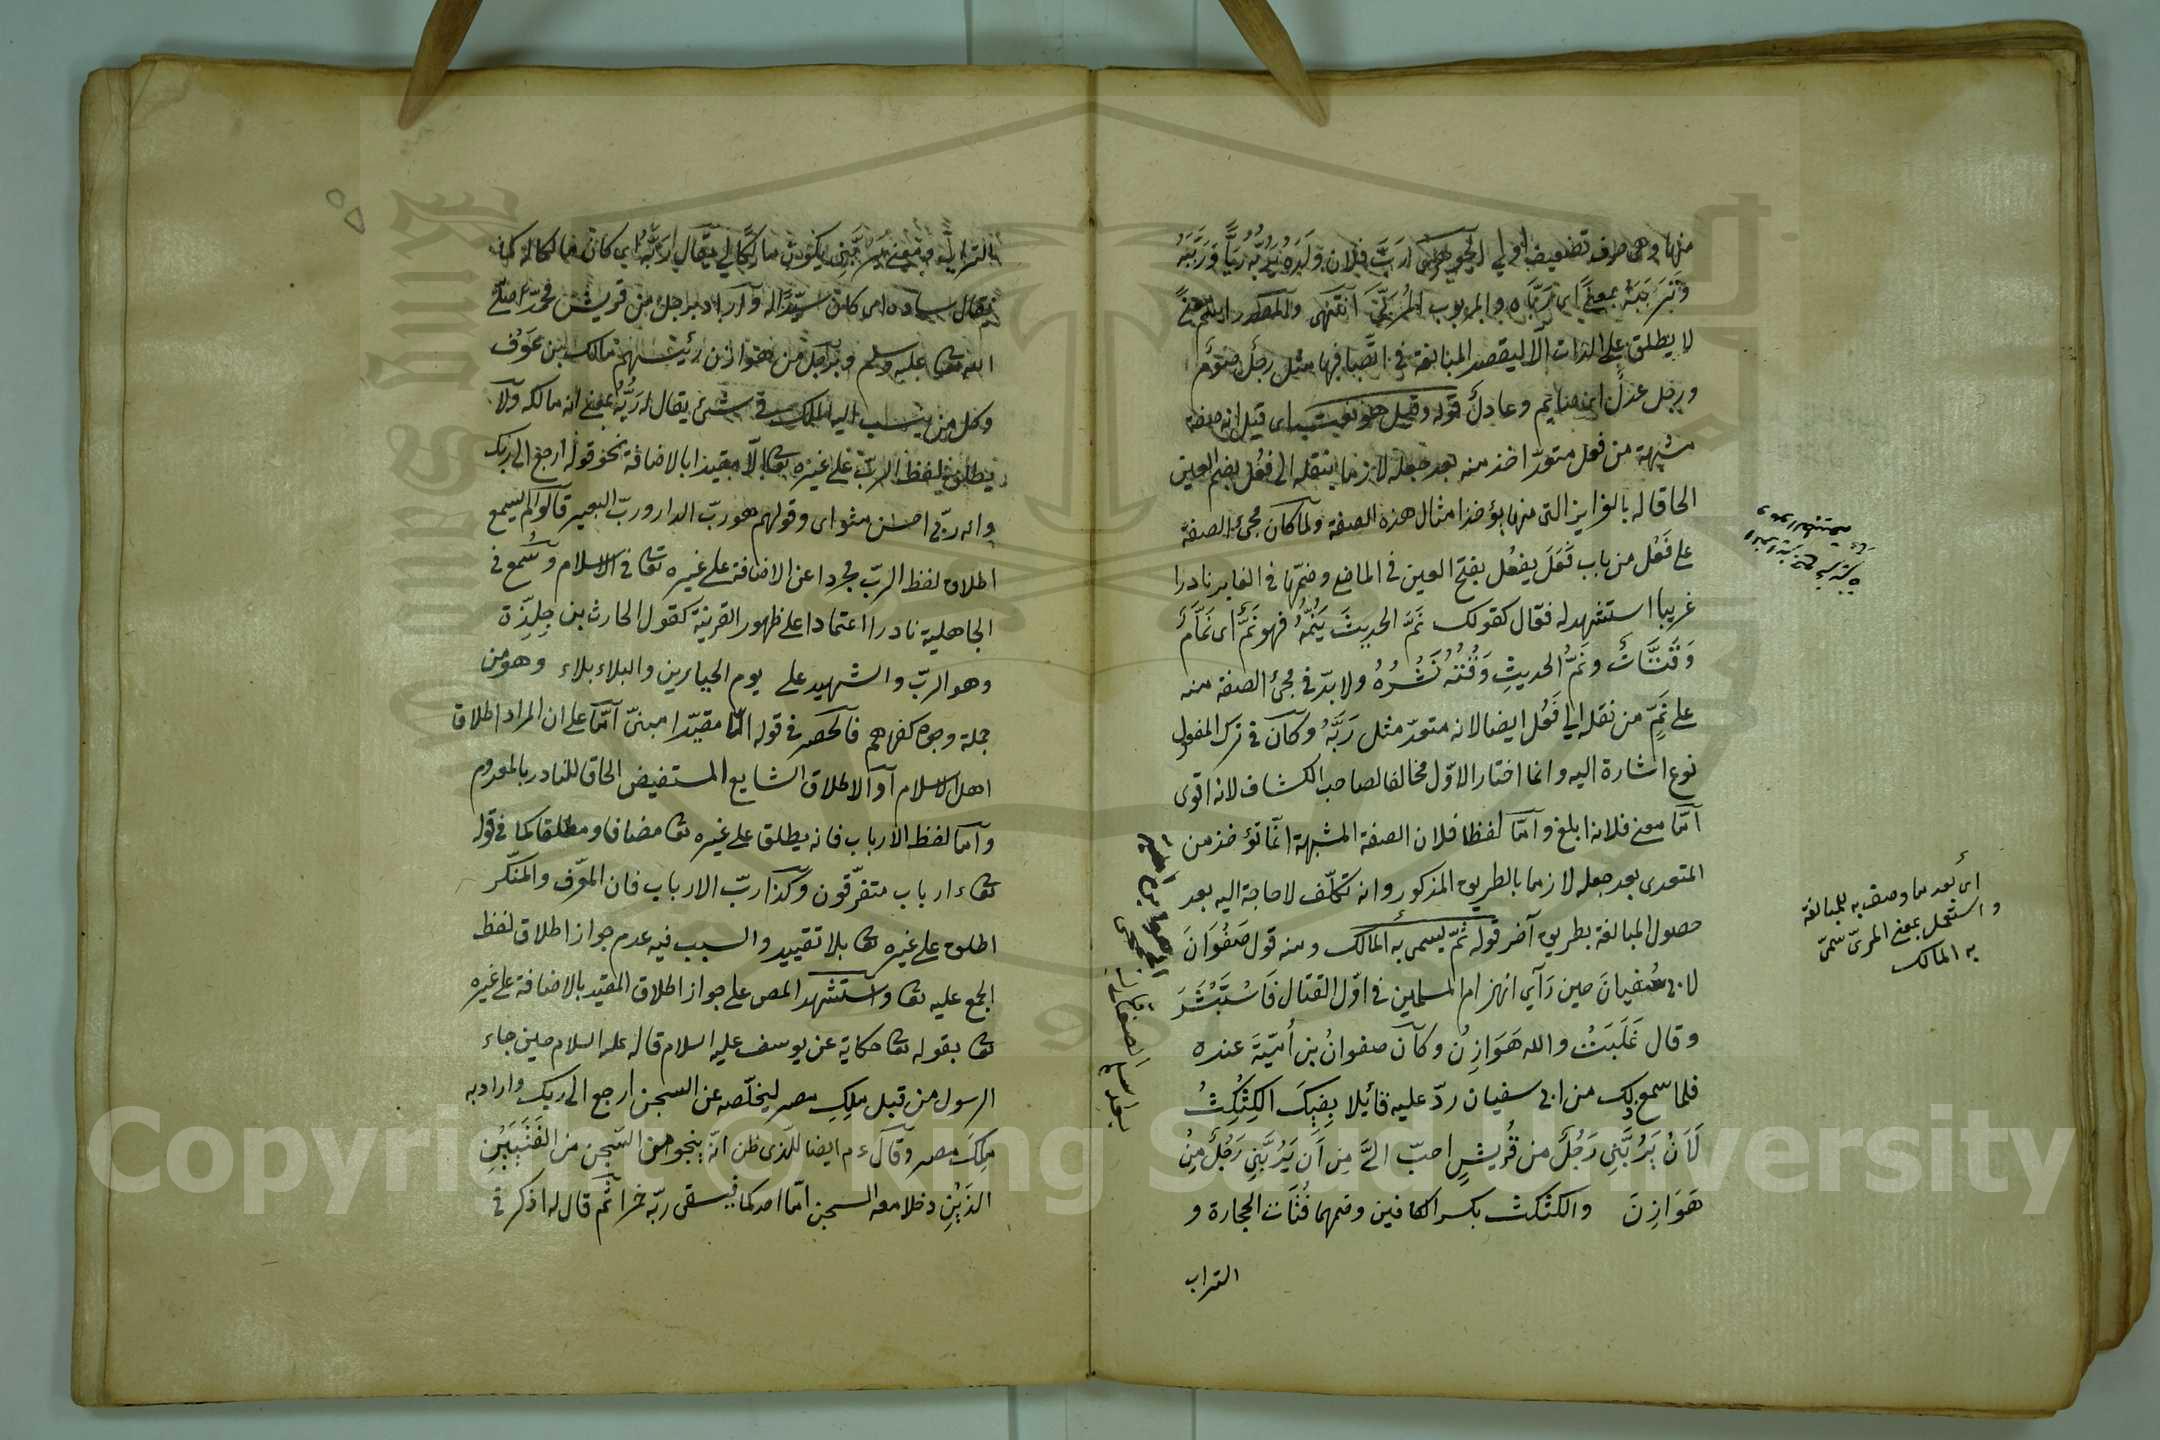 منها وهي حرف تضعيف اولي الجوهري رَبّ فلان ولده يَرُبُّهُ رَبًّا وَرَبَّبَهُ
وَتَرَبَّبَهُ بمعنًى اي رَبَّاه والمربوب المُرَبَّى انتهى والمصدر
لا يطلق على الذات الا ليقصد المبالغة في اتصافها مثل رجل صَوْم
ورجل عدل اي صايم وعادل قوله وقيل هو نعت اى قيل انه صفة
مشبهة من فعل متعدّ اخذ منه بعد جعله لازما ينقله الى فعُل بضم العين
الحاقا له بالغرايز التى منها يؤخذ امثال هذه الصفة ولما كان مجئ الصفة
على فَعْل من باب فَعَلَ يفعُل بفتح العين فى الماضى وضمّها فى الغابر نادرا
غريبا استشهد له فقال كقولك نَمَّ الحديثَ يَنُمُّهُ فهو نَمٌّ اى نَمَّامٌ
وَقَتَّاتٌ ونَمُّ الحديثِ وَقَتُّهُ نَشْرُهُ ولا بدّ فى مجئ الصفة منه
على نَمّ من نقله الى فَعُل ايضا لانه متعدّ مثل رَبَّهُ وكان فى ترك المفعول
نوع اشارة اليه وانما اختار الاوّل مخالفا لصاحب الكشاف لانه اقوى
امّا معنى فلانه ابلغ وامّا لفظا فلان الصفة المشبهة انّما تؤخذ من
المتعدى بعد جعله لازما بالطريق المذكور وانه تكلّف لا حاجة اليه بعد
حصول المبالغة بطريق آخر قوله ثمّ يسمى به المالك ومنه قول صَفْوَانَ
لابى سُفيانَ حين رَآى انهزام المسلمين فى اوّل القتال فَاسْتَبْشَرَ
وقال غَلَبَتْ والله هَوَازِنُ وكان صفوانُ بن اُمَيّةَ عنده
فلما سمع ذلك من ابى سفيان ردّ عليه قائلا بِفِيكَ الكِثْكِثُ
لَاَنْ يَرُبَّنِي رَجُلٌ من قُرَيشٍ احبّ الىَّ مِن اَن يَرُبَّنِي رَجُلٌ مِنْ
هَوَازِنَ والكثكث بكسر الكافين وضمهما فُتَات الحجارة و
التراب
اى بعد ما وصف به للمبالغة
واستعمل بمعنى المربىّ سمىّ
به المالك
بالتراب ومعنى يَرُبَّنِي يكون مالكا لي يقال رَبَّهُ اي كان مالكا له كما
يقال ساده اى كان سيّدا له وارادبرجل من قريش محمّدا صلى
الله تعا عليه وسلم وبرجل من هوازن رئيسهم مالك بن عَوْف
وكل من ينسب اليه الملك فى شئ يقال له رَبُّهُ بمعنى انه مالكه ولا
يطلق لفظ الربّ على غيره تعا الّا مقيدا بالاضافة نحو قوله ارجع الى ربك
وانه ربى احسن مثواى وقولهم هو ربّ الدار وربّ البعير قالوا لم يسمع
اطلاق لفظ الربّ مجردا عن الاضافة على غيره تعا فى الاسلام وسُمع فى
الجاهلية نادرا اعتمادا على ظهور القرينة كقول الحارث بن حِلِّزة
وهو الربّ والشهيد على يوم الحيارين والبلاء بلاء وهو من
جملة وجوه كفرهم فالحصر فى قوله الّا مقيّدا مبنىّ امّا على ان المراد اطلاق
اهل الاسلام أو الاطلاق الشايع المستفيض الحاقا للنادر بالمعدوم
وامّا لفظ الارباب فانه يطلق على غيره تعا مضافا ومطلقا كما فى قوله
تعا ءارباب متفرّقون وكذا ربّ الارباب فان المعرّف والمنكّر
اطلق على غيره تعا بلا تقييد والسبب فيه عدم جواز اطلاق لفظ
الجمع عليه تعا واستشهد المص على جواز اطلاق المقيّد بالاضافة على غيره
تعا بقوله تعا حكاية عن يوسف عليه السلام قاله عليه السلام حين جاء
الرسول من قبل ملِكِ مصر ليخلّصه عن السجن ارجع الى ربك واراد به
ملِكَ مصر وقال ءم ايضا للّذى ظن انّه ينجو من السّجن من الفَتَيَيْنِ
الذَيْنِ دخلا معه السجن امّا احدكما فيسقى ربّه خمرا ثمّ قال له اذكر فى